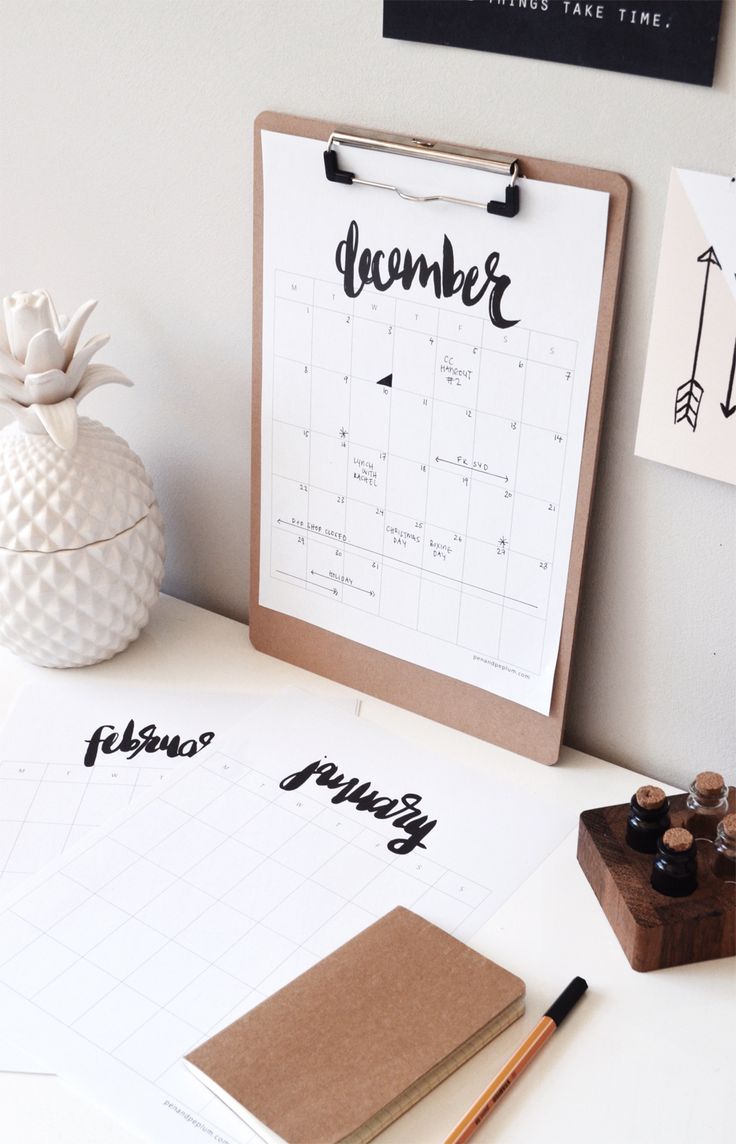 THINGS TAKE TIME.
december
M T W T F S S
1 2 3 4 5 6 7
CC
HANGOUT
#2
8 9 10 11 12 13 14
FK SYD
15 16 17 18 19 20 21
LUNCH
WITH
RACHEL
22 23 24 25 26 27 28
POP SHOP CLOSED
CHRISTMAS
DAY
BOXING
DAY
29 30 31
HOLIDAY
penandpeplum.com
february
M T W
january
M T W T F S S
penandpeplum.com